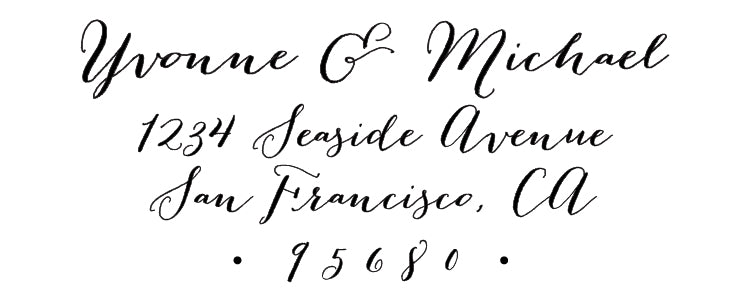 Yvonne & Michael
1234 Seaside Avenue
San Francisco, CA
• 95680 •